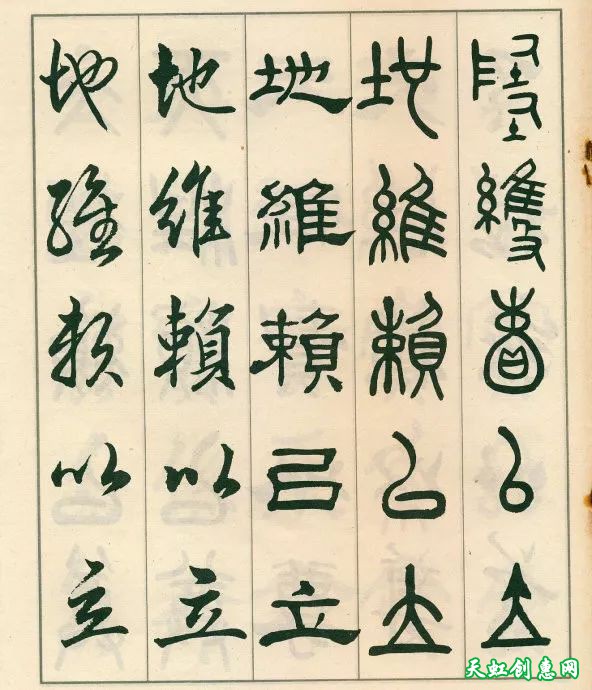 墬維㠯立
地維賴㠯立
地維賴㠯立
地維賴以立
地維賴以立
天虹创惠网